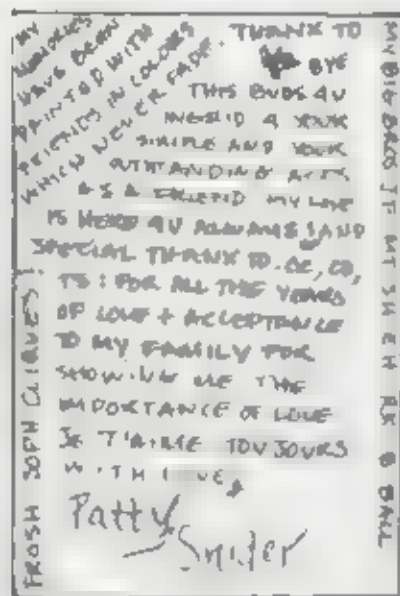 MY MEMORIES
HAVE BEEN
PAINTED WITH
FRIENDS IN COLORS
WHICH NEVER FADE.
THANX TO
BYE
THIS ENDS 4U
SIMPLE AND YOUR
OUTSTANDING ACTS
AS A FRIEND MY LOVE
IS HERE 4U ALWAYS! AND
SPECIAL THANX TO
TS: FOR ALL THE YEARS
OF LOVE + ACCEPTANCE
TO MY FAMILY FOR
SHOWING ME THE
IMPORTANCE OF LOVE
JE T'AIME TOUJOURS
WITH LOVE,
Patty
Snider
FROSH SOPH
MY BIG BROS JF MT SH EH RK B BALL